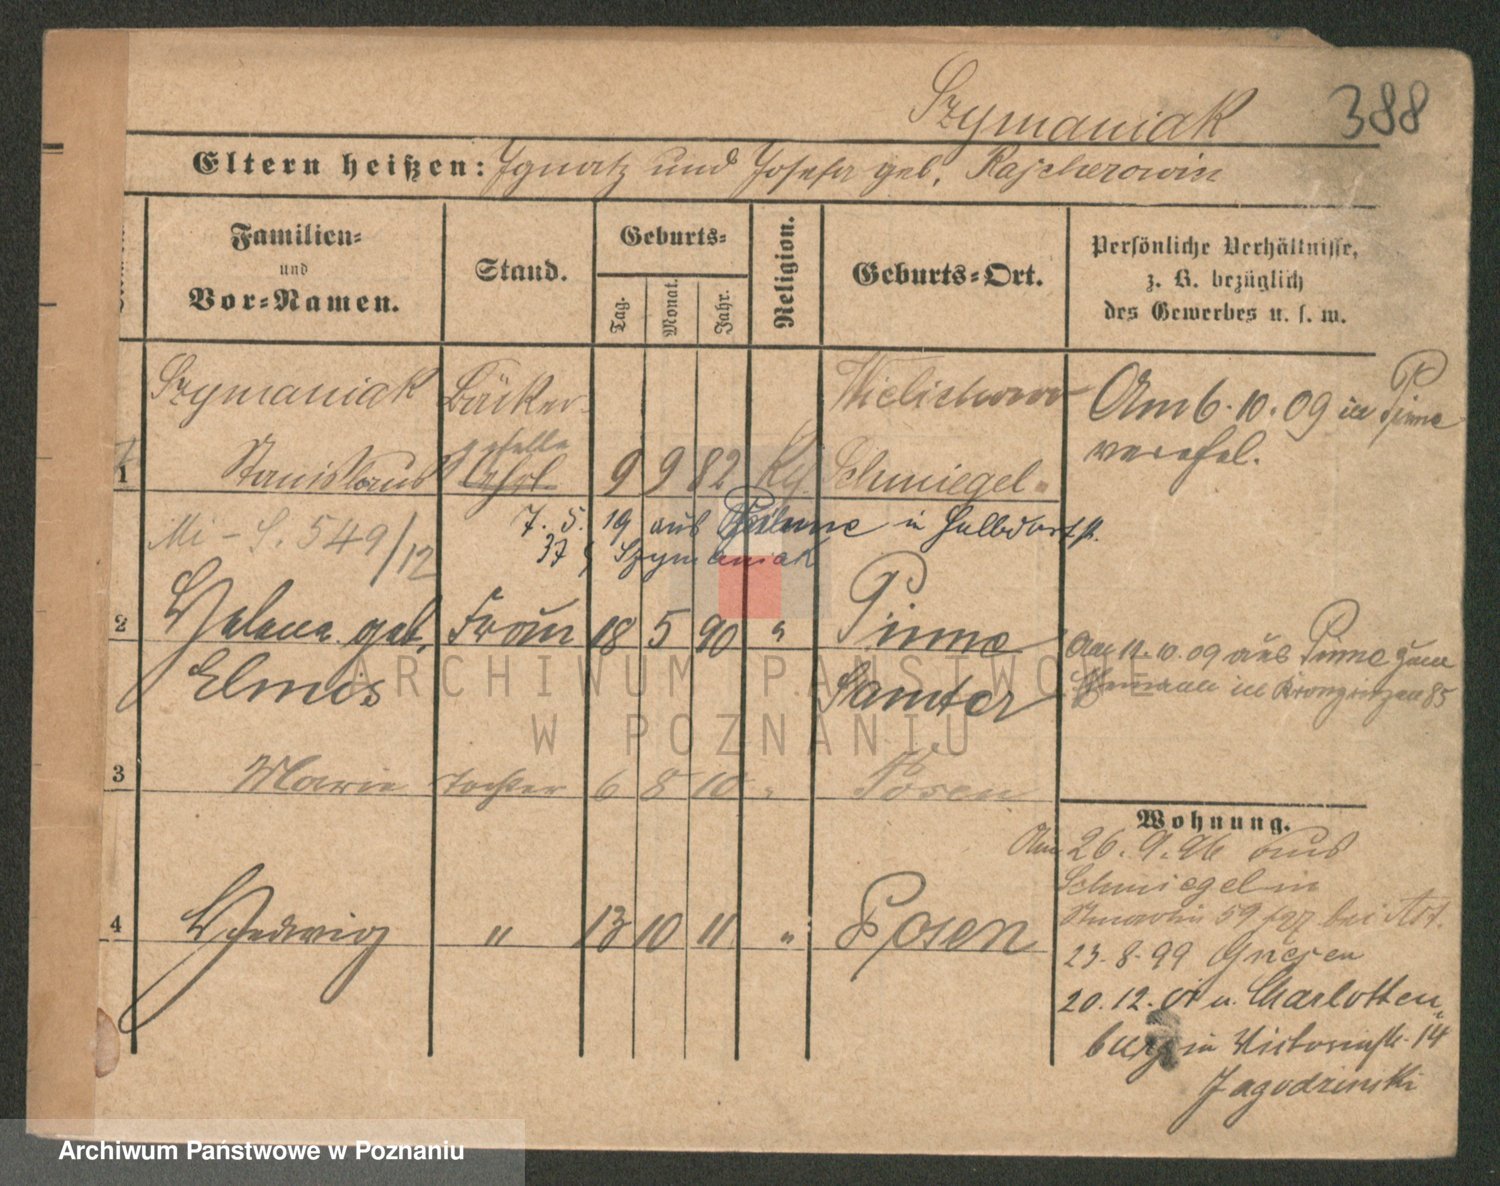 Szymaniak 388
Eltern heißen: Ignatz und Josefa geb.
Familien=
und
Vor=Namen.
Stand.
Geburts=
Tag.
Monat.
Jahr.
Religion.
Geburts=Ort.
Persönliche Verhältnisse,
z. B. bezüglich
des Gewerbes u. s. w.
Szymaniak Bäcker Wielichowo Am 6.10.09 in Pinne
geselle verehel.
1 Stanislaus Lehrl. 9 9 82 Kt. Schmiegel
7. 5. 19 aus in Halbdorfst.
Mi - S. 549/12 37 Szymaniak
2 Helene geb. Frau 18 5 90 " Pinne Am 11.10.09 aus Pinne zum
Elmis Samter in Kronprinzen 85
3 Marie Tochter 6 8 10 " Posen
Wohnung.
Am 26.9.96 aus
Schmiegel in
4 Hedwig " 13 10 11 " Posen St. Martin 59 bei
23.8.99 Gnesen
20.12.01 u. Charlotten
burg in Victoriastr. 14
Jagodzinski
ARCHIWUM PAŃSTWOWE
W POZNANIU
Archiwum Państwowe w Poznaniu